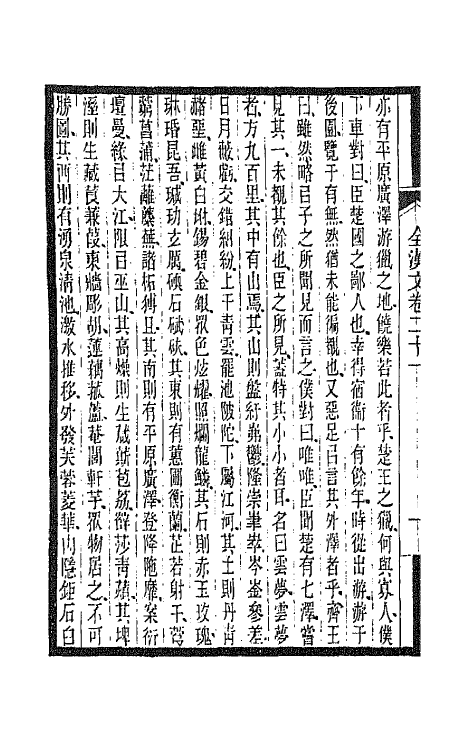 全漢文卷二十一
亦有平原廣澤游獵之地饒樂若此者乎楚王之獵何與寡人僕
下車對曰臣楚國之鄙人也幸得宿衞十有餘年時從出游游于
後園覽于有無然猶未能徧覩也又惡足㠯言其外澤者乎齊王
曰雖然略㠯子之所聞見而言之僕對曰唯唯臣聞楚有七澤嘗
見其一未覩其餘也臣之所見蓋特其小小者耳名曰雲夢雲夢
者方九百里其中有山焉其山則盤紆岪鬱隆崇嵂崒岑崟參差
日月蔽虧交錯糾紛上干青雲罷池陂陀下屬江河其土則丹青
赭堊雌黃白坿錫碧金銀眾色炫耀照爛龍鱗其石則赤玉玫瑰
琳珉昆吾瑊玏玄厲碝石碔砆其東則有蕙圃衡蘭芷若射干芎
藭菖蒲茳蘺蘪蕪諸柘猼且其南則有平原廣澤登降陁靡案衍
壇曼緣㠯大江限㠯巫山其高燥則生葴菥苞荔薜莎青薠其埤
溼則生藏莨蒹葭東牆彫胡蓮藕菰蘆菴閭軒芋眾物居之不可
勝圖其西則有湧泉清池激水推移外發芙蓉菱華內隱鉅石白